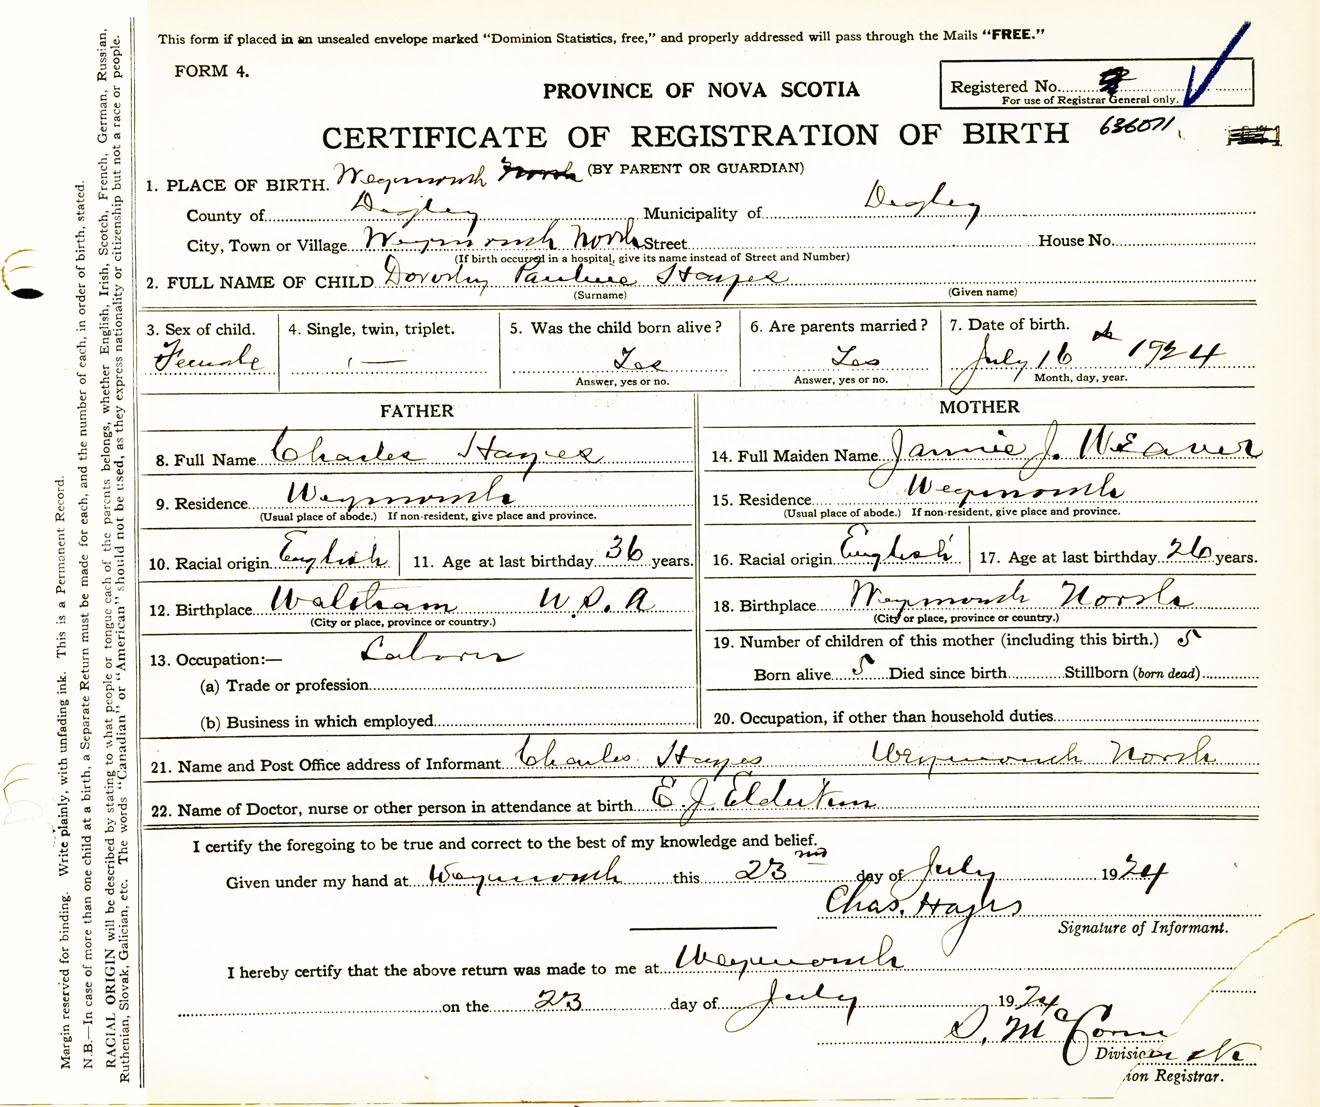 This form if placed in an unsealed envelope marked "Dominion Statistics, free," and properly addressed will pass through the Mails "FREE."
FORM 4.
PROVINCE OF NOVA SCOTIA
Registered No.
For use of Registrar General only.
636071
CERTIFICATE OF REGISTRATION OF BIRTH
(BY PARENT OR GUARDIAN)
1. PLACE OF BIRTH. Weymouth North
County of Digby Municipality of Digby
City, Town or Village Weymouth North Street House No.
(If birth occurred in a hospital, give its name instead of Street and Number)
2. FULL NAME OF CHILD Dorothy Pauline Hayes
(Surname) (Given name)
3. Sex of child. 4. Single, twin, triplet. 5. Was the child born alive? 6. Are parents married? 7. Date of birth.
Female 1 — Yes Yes July 16 th 1924
Answer, yes or no. Answer, yes or no. Month, day, year.
FATHER MOTHER
8. Full Name Charles Hayes 14. Full Maiden Name Jannie J. Weaver
9. Residence Weymouth 15. Residence Weymouth
(Usual place of abode.) If non-resident, give place and province. (Usual place of abode.) If non-resident, give place and province.
10. Racial origin English 11. Age at last birthday 36 years. 16. Racial origin English 17. Age at last birthday 26 years.
12. Birthplace Waltham U.S.A 18. Birthplace Weymouth North
(City or place, province or country.) (City or place, province or country.)
13. Occupation:— Laborer 19. Number of children of this mother (including this birth.) 5
(a) Trade or profession Born alive 5 Died since birth Stillborn (born dead)
(b) Business in which employed 20. Occupation, if other than household duties
21. Name and Post Office address of Informant Charles Hayes Weymouth North
22. Name of Doctor, nurse or other person in attendance at birth E. J. Elderkin
I certify the foregoing to be true and correct to the best of my knowledge and belief.
Given under my hand at Weymouth this 23 nd day of July 1924
Chas. Hayes
Signature of Informant.
I hereby certify that the above return was made to me at Weymouth
on the 23 day of July 1924
Division
ion Registrar.
Margin reserved for binding. Write plainly, with unfading ink. This is a Permanent Record.
N.B.—In case of more than one child at a birth, a Separate Return must be made for each, and the number of each, in order of birth, stated.
RACIAL ORIGIN will be described by stating to what people or tongue each of the parents belongs, whether English, Irish, Scotch, French, German, Russian,
Ruthenian, Slovak, Galician, etc. The words "Canadian" or "American" should not be used, as they express nationality or citizenship but not a race or people.